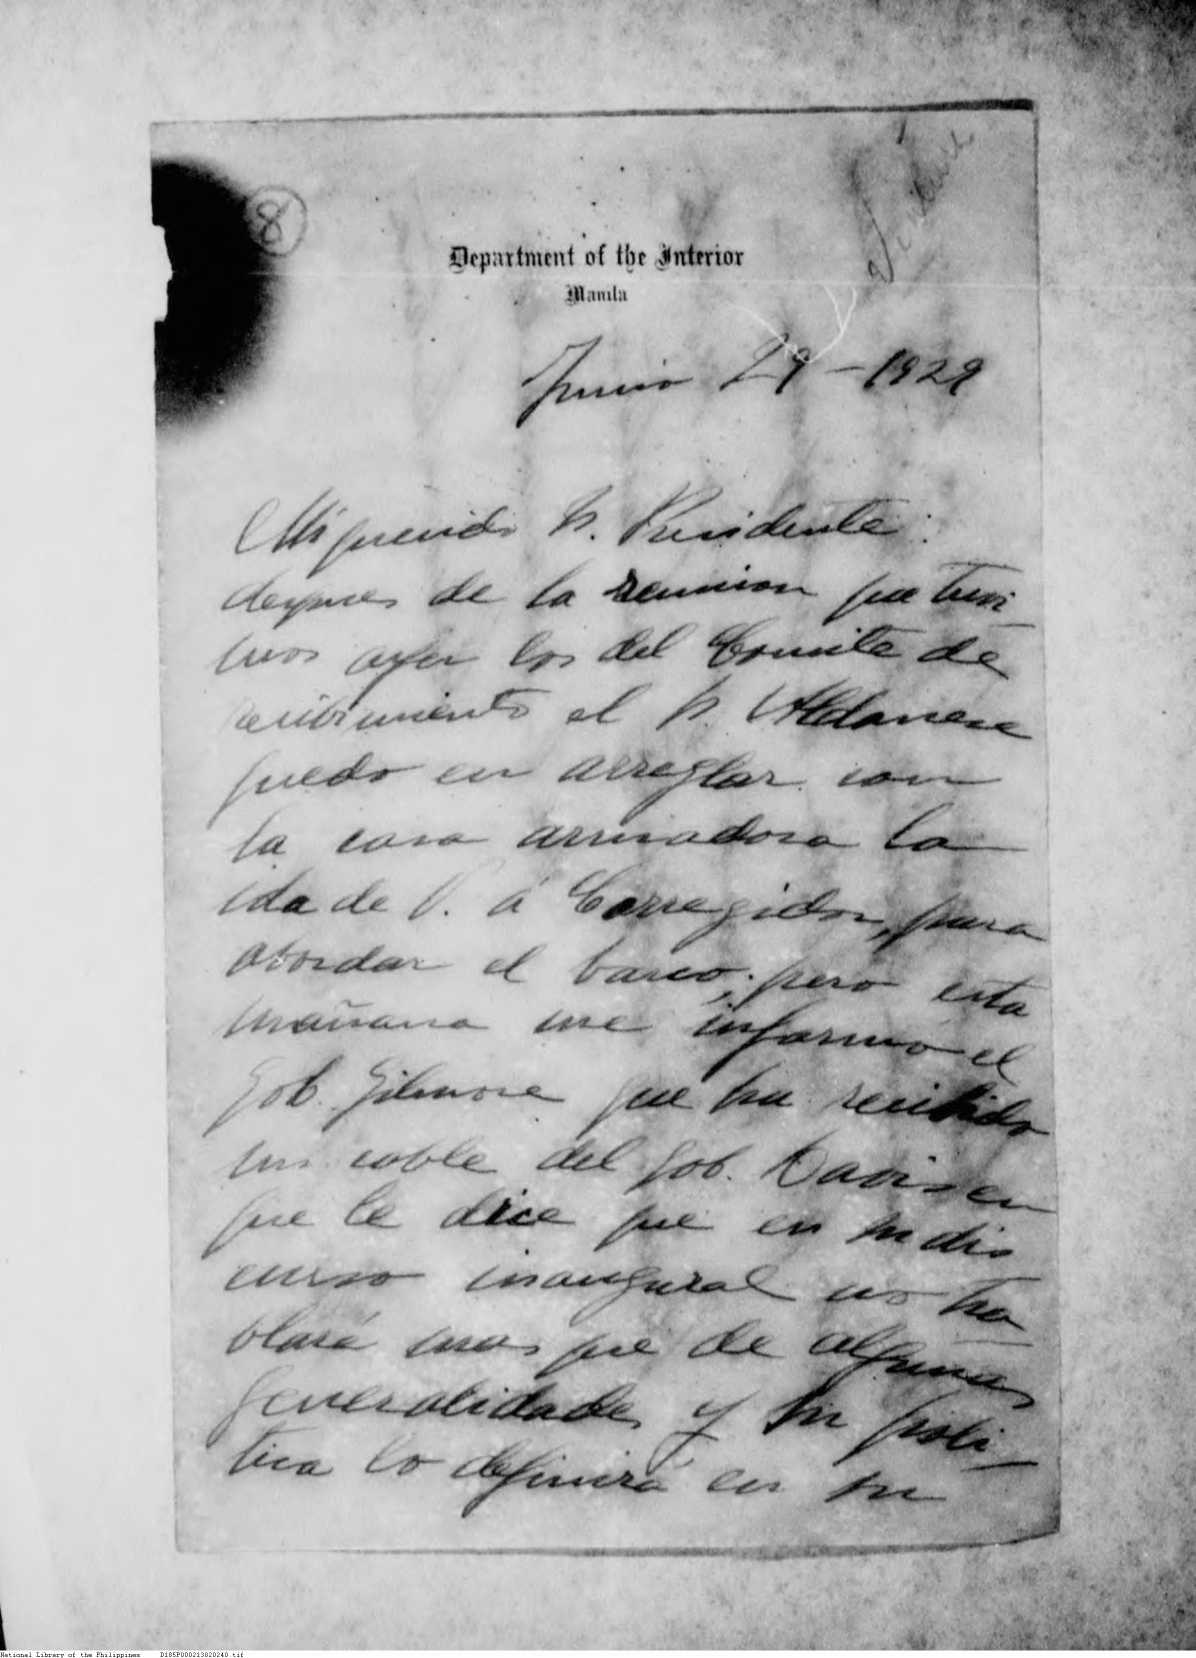 8
Department of the Interior
Manila
Junio 29 - 1929
Mi querido Sr. Presidente:
despues de la reunion que tuvi-
mos ayer los del Comité de
recibimiento el Sr. Aldanese
quedo en arreglar con
la casa armadora la
ida de V. á Corregidor, para
abordar el barco; pero esta
mañana me informó el
Gob. Gilmore que ha recibido
un cable del Gob. Davis en
que le dice que en su dis
curso inaugural no ha-
blará mas que de algunas
generalidades y su polí-
tica lo definirá en su
National Library of the Philippines D185P000213020240.tif